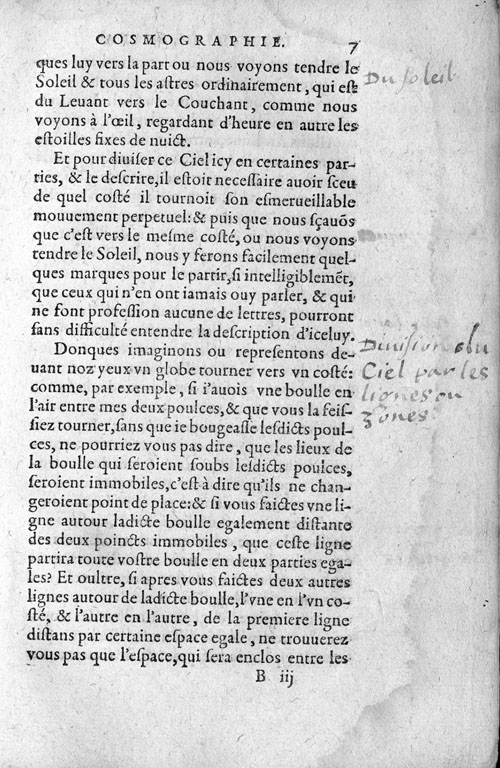 COSMOGRAPHIE. 7
ques luy vers la part ou nous voyons tendre le
Soleil & tous les astres ordinairement, qui est
du Leuant vers le Couchant, comme nous
voyons à l'œil, regardant d'heure en autre les
estoilles fixes de nuict.
Et pour diuiser ce Ciel icy en certaines par-
ties, & le descrire, il estoit necessaire auoir sceu
de quel costé il tournoit son esmerueillable
mouuement perpetuel: & puis que nous sçauōs
que c'est vers le mesme costé, ou nous voyons
tendre le Soleil, nous y ferons facilement quel-
ques marques pour le partir, si intelligiblemēt,
que ceux qui n'en ont iamais ouy parler, & qui
ne font profession aucune de lettres, pourront
sans difficulté entendre la description d'iceluy.
Donques imaginons ou representons de-
uant noz yeux vn globe tourner vers vn costé:
comme, par exemple, si i'auois vne boulle en
l'air entre mes deux poulces, & que vous la feis-
siez tourner, sans que ie bougeasse lesdicts poul-
ces, ne pourriez vous pas dire, que les lieux de
la boulle qui seroient soubs lesdicts poulces,
seroient immobiles, c'est à dire qu'ils ne chan-
geroient point de place: & si vous faictes vne li-
gne autour ladicte boulle egalement distante
des deux poincts immobiles, que ceste ligne
partira toute vostre boulle en deux parties ega-
les? Et oultre, si apres vous faictes deux autres
lignes autour de ladicte boulle, l'vne en l'vn co-
sté, & l'autre en l'autre, de la premiere ligne
distans par certaine espace egale, ne trouuerez
vous pas que l'espace, qui sera enclos entre les
B iij
Du soleil
Diuision du
Ciel par les
lignes ou
zones